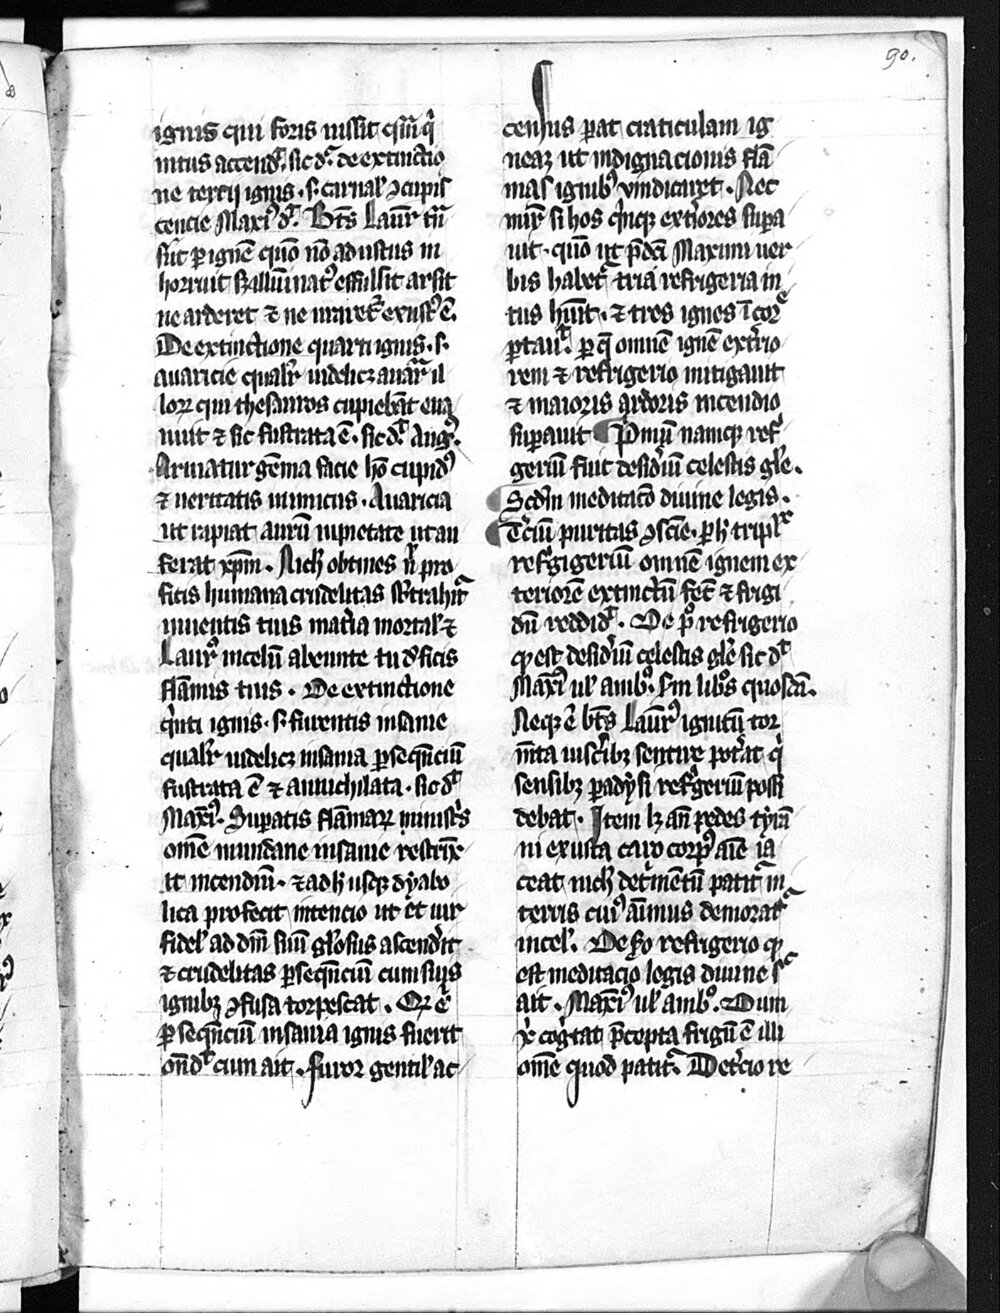 90.
ignis qui foris ussit qm̄ q̄
intus accendꝰ. sic dꝰ. de extinctio
ne tertij ignis. s. carnalꝰ ꝯcupis
cencie Maxiꝰ dꝰ. Bt̄s Laur̄ tū
sit per ignē quō nō adustus in
horruit sꝫ illūinatꝰ effulsit arsit
ne arderet ⁊ ne ureretꝰ exustꝰ ē.
De extinctione quarti ignis. s.
auaricie qualr̄ uidelicꝫ auar̄ il
lorꝫ qui thesauros cupiebāt eua
nuit ⁊ sic frustrata ē. sic dꝰ Augꝰ.
Armatur gēma facie hō cupidꝰ
⁊ ueritatis inimicus. Auaricia
ut rapiat aurū inpietate ut au
ferat xp̄m. Nich̄ obtines n̄ pro
ficis humana crudelitas sb̄trahit̄
inuentis tuis mat̄ia mortalꝰ ⁊
Laurꝰ in celū abeunte tu dꝰficis
flāmis tuis. De extinctione
qīnti ignis. s. furentis insanie
qualr̄ uidelicꝫ insania ꝑseqn̄ciū
frustrata ē ⁊ annichilata. sic dꝰ
Maxiꝰ. Suꝑatis flāmarꝫ minist̄s
omē mundane insanie restrīx
it incendiū. ⁊ ad h̄ usqꝫ dyabo
lica profecit intencio ut et uir
fidelꝰ ad dn̄m suū gl̄osus ascend̄it
⁊ crudelitas ꝑseqn̄ciū cum suis
ignibꝫ ꝯfusa torpescat. Qꝛ ē
ꝑseqn̄ciū insania ignis fuerit
on̄dꝰ cum ait. furor gentilꝰ ac
census parat craticulam ig
neaꝫ ut indignacionis flā
mas ignibꝰ vindicaret. Nec
mirꝫ si hos q̄nqꝫ ext̄iores supa
uit. quō ut p̄dc̄a Maximi uer
bis habetꝰ tria refrigeria in
tus hūit. ⁊ tres ignes ī cor
portauit. ꝑ q̄ omnē ignē ext̄io
rem ⁊ refrigerio mitigauit
⁊ maioris ardoris incendio
suꝑauit Pimū namqꝫ ref̄
gerium fuit desid̄iū celestis gl̄e.
Scd̄m meditac̄o diuine legis.
T̄ciū puritas ꝯsc̄ie. ꝑ h̄ triplꝰ
ref̄gigeriū omnē ignem ex
teriorē extinctū fec̄ ⁊ frigi
dū reddidꝰ. De pꝰ refrigerio
qꝰ est desid̄iū celestis gl̄e sic dꝰ
Maxiꝰ ulꝰ ambꝰ. sm̄ libꝰs quosdā.
Neqꝫ ē bt̄s Laur̄ꝰ ignitū tor
m̄ta uisc̄ibꝫ sentire pot̄at q̄
sensibꝫ ꝑadysi ref̄geriū possi
debat. Item lꝫ an̄ pedes tyrā
ni exusta caro corpꝰ aīe ia
ceat nich̄ det̄mentū patit̄ in
terris cuiꝰ aīmus demorat̄
in celꝰ. De scd̄o refrigerio qꝰ
est meditacio legis diuine sic
ait. Maxiꝰ ulꝰ ambꝰ. Dum
xꝰ cogitat p̄cepta frigū ē illi
omē quod patit̄. De t̄cio re